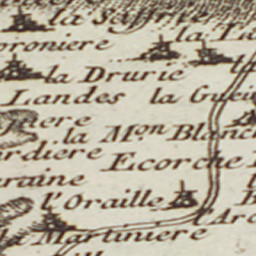 la Saffrie
oroniere la
la Drurie
Landes la Gue
iere
la M.on Blanc
rdiere Ecorche
raine
l'Oraille
l'Arc
la Martiniere